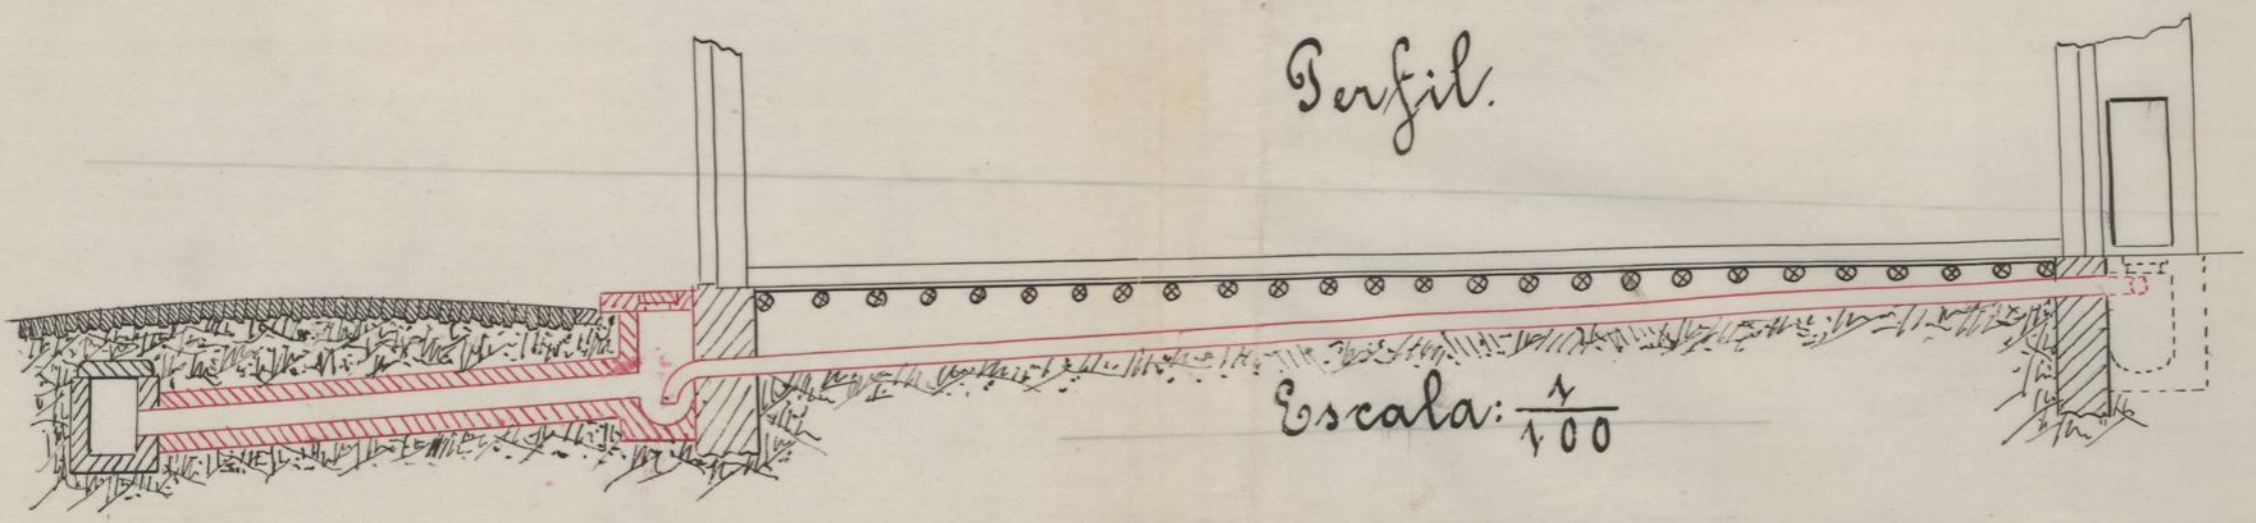 Perfil.
Escala: 1/100